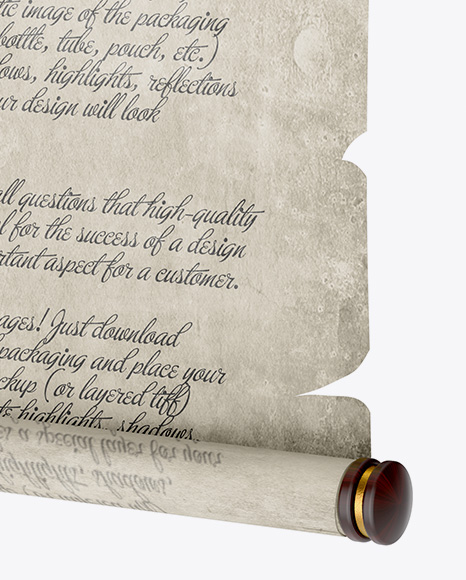 tic image of the packaging
bottle, tube, pouch, etc.)
ows, highlights, reflections
ur design will look
all questions that high-quality
l for the success of a design
rtant aspect for a customer.
ages! Just download
packaging and place your
ckup (or layered tiff)
highlights, shadows,
s a special layer for your
highlights, shadows,